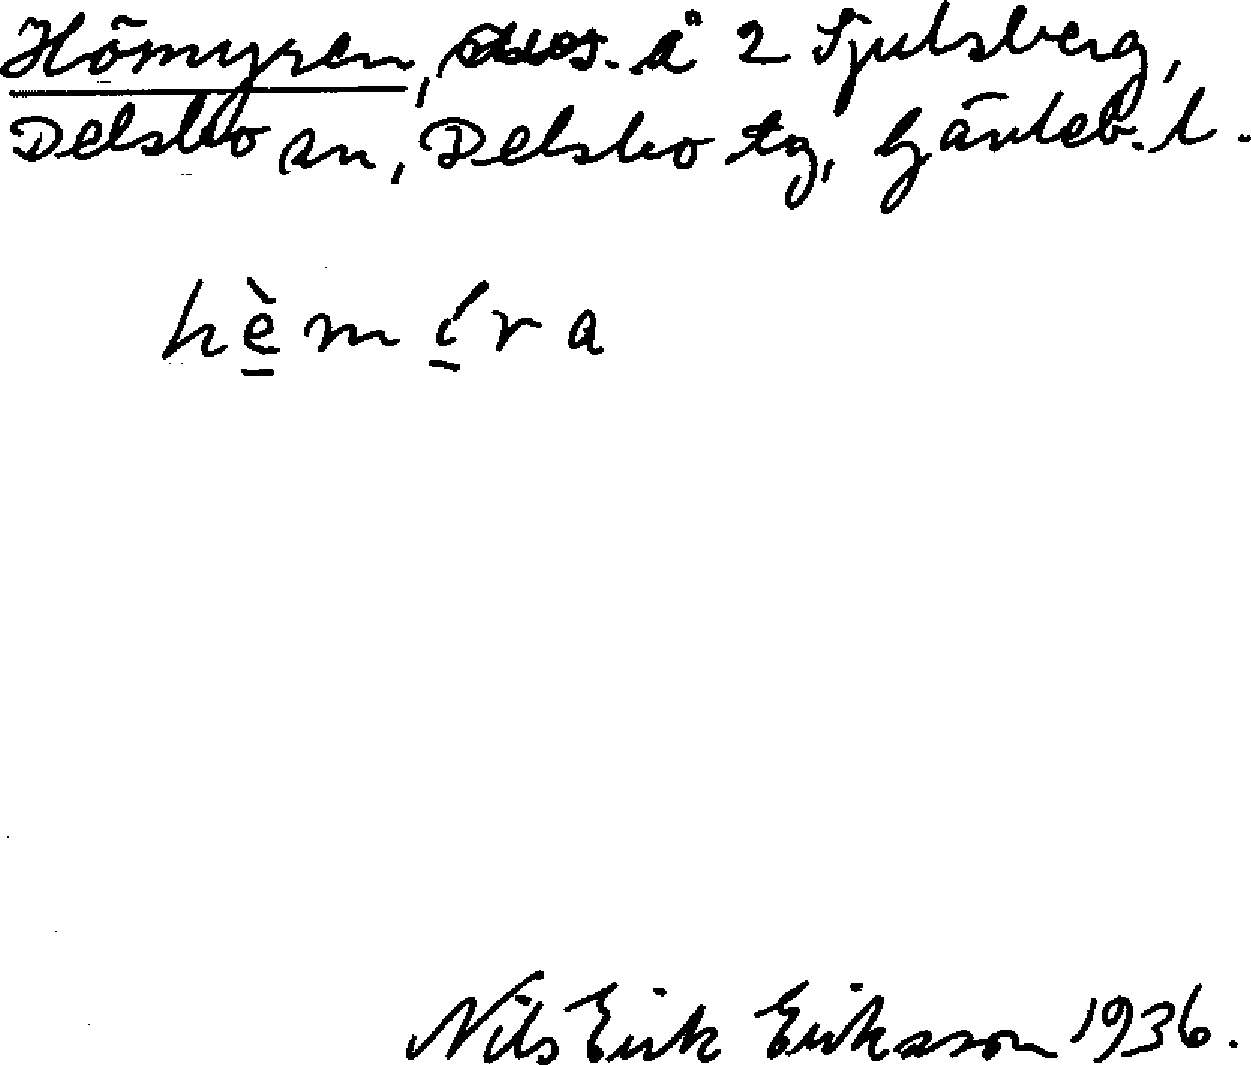 Hömyren, å 2 Sjulsberg,
Delsbo sn, Delsbo tg, Gävleb. l.
hèmíra
Nils Erik Eriksson 1936.